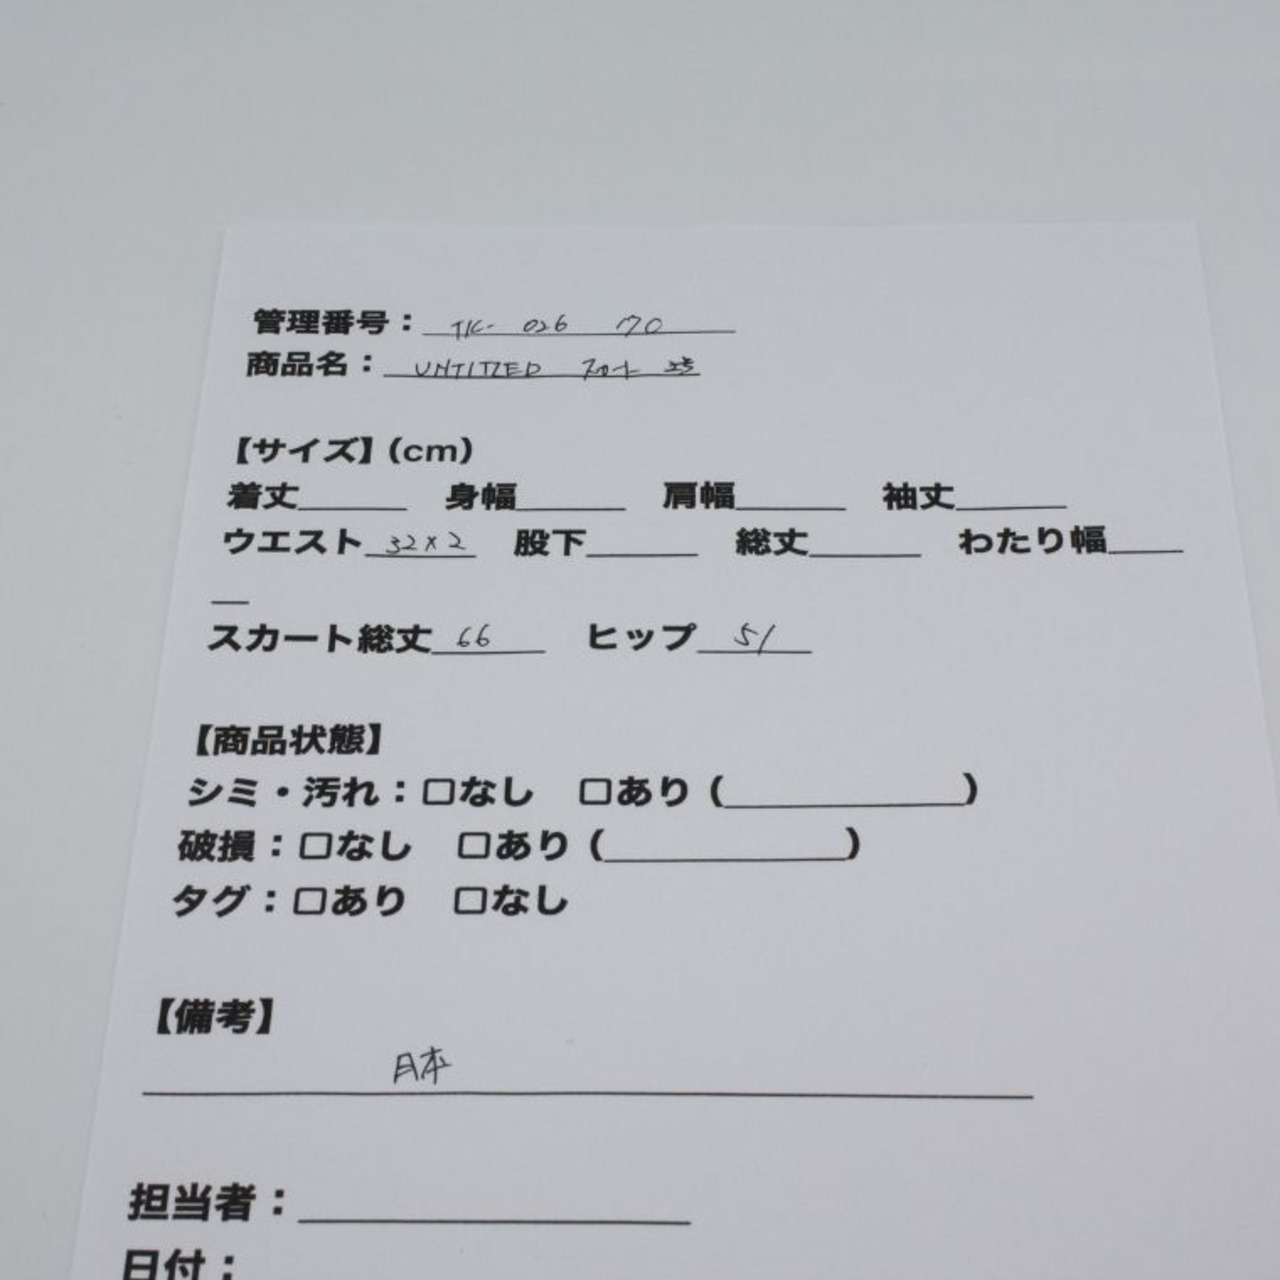 管理番号：TK- 026 70
商品名：UNTITLED
【サイズ】(cm)
着丈______ 身幅______ 肩幅______ 袖丈______
ウエスト 32×2 股下______ 総丈______ わたり幅____
__
スカート総丈 66 ヒップ 51
【商品状態】
シミ・汚れ：□なし □あり（____________）
破損：□なし □あり（____________）
タグ：□あり □なし
【備考】
日本
担当者：____________________
日付：